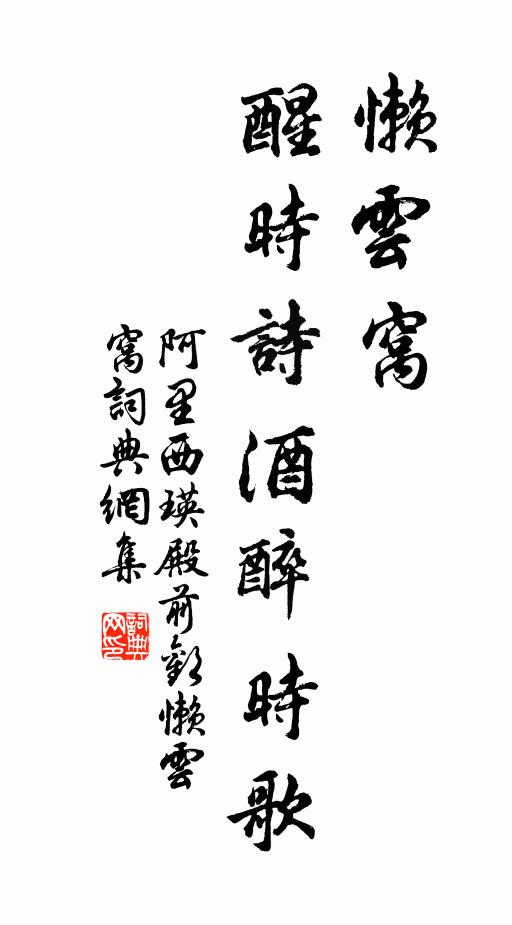 懶雲窩
醒時詩酒醉時歌
阿里西瑛殿前歡懶雲
窩詞典網集
詞典网印